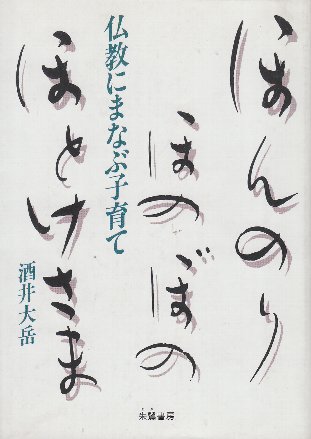 ほんのり
ほのぼの
ほとけさま
仏教にまなぶ子育て
酒井大岳
朱鷺書房